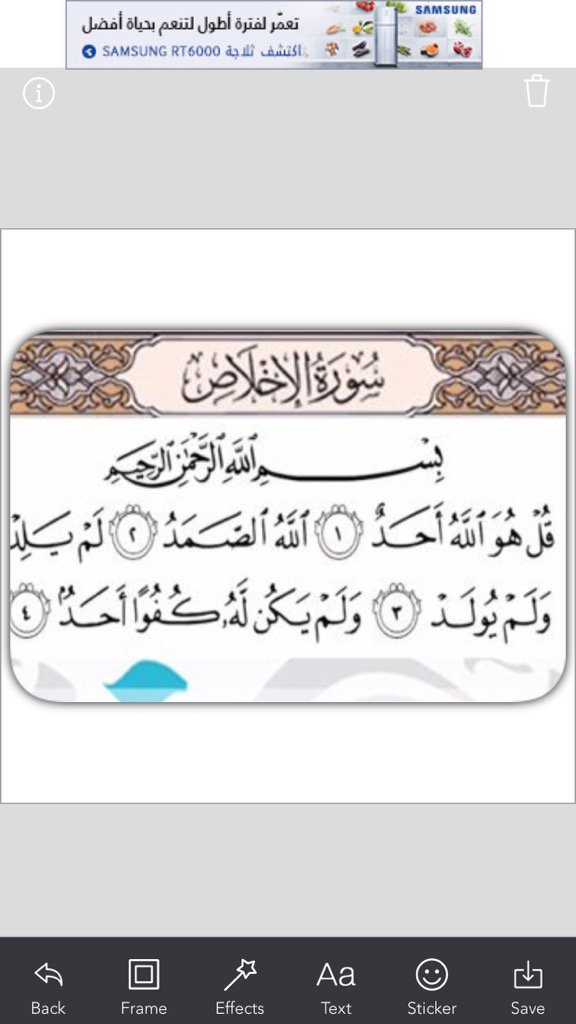 SAMSUNG
تعمّر لفترة أطول لتنعم بحياة أفضل
اكتشف ثلاجة SAMSUNG RT6000
سُورَةُ الإِخْلَاصِ
بِسْمِ اللَّهِ الرَّحْمَٰنِ الرَّحِيمِ
قُلْ هُوَ ٱللَّهُ أَحَدٌ ١ ٱللَّهُ ٱلصَّمَدُ ٢ لَمْ يَلِدْ
وَلَمْ يُولَدْ ٣ وَلَمْ يَكُن لَّهُۥ كُفُوًا أَحَدٌۢ ٤
Back Frame Effects Text Sticker Save
Aa